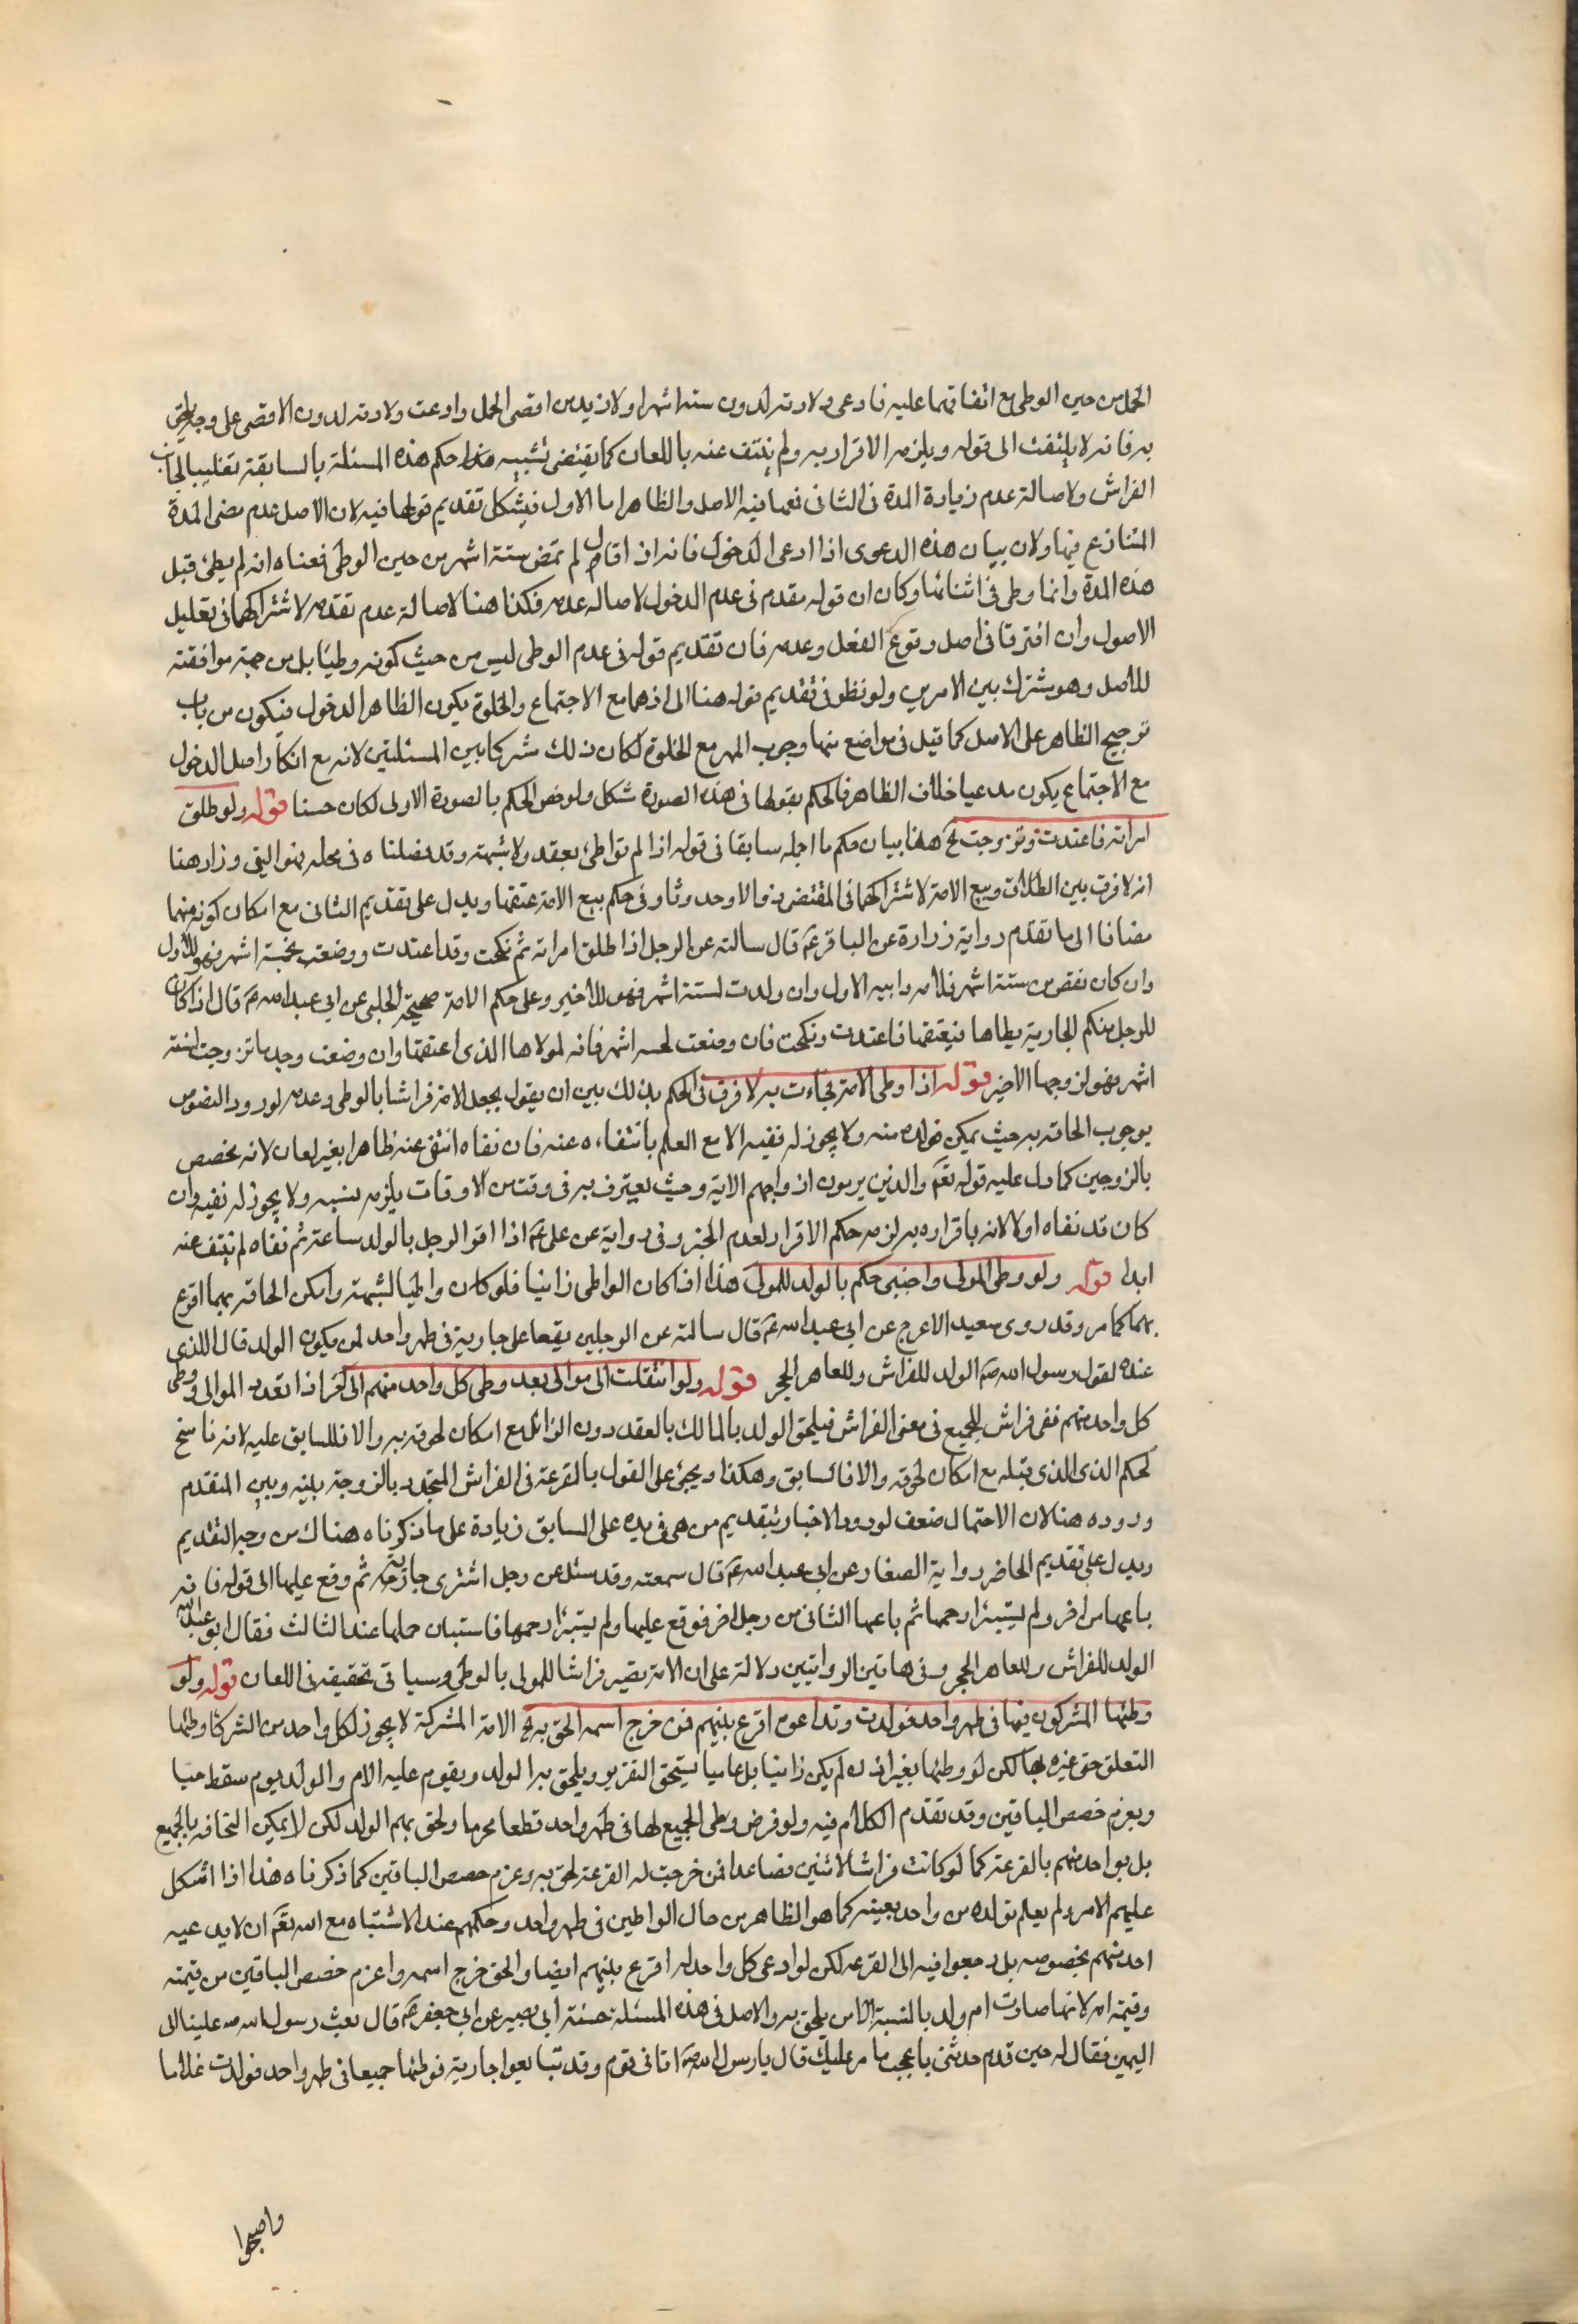 الحمل من حين الوطي مع اتفاقهما عليه فادعى ولادته لدون ستة اشهر او لازيد من اقصى الحمل وادعت ولادته لدون الاقصى على وجه يلحق
به فانه لا يلتفت الى قوله ويلزمه الاقرار به ولم ينتف عنه باللعان كما يقتضى تشبيه حكم هذه المسئلة بالسابقة تغليبا لجانب
الفراش ولاصالة عدم زيادة المدة في الثاني فمعها فيه الاصل والظاهر اما الاول فيشكل تقديم قولها فيه لان الاصل عدم مضى المدة
المتنازع فيها ولان بيان هذه الدعوى اذا ادعى الدخول فانه اذ اقال لم تمض ستة اشهر من حين الوطي فمعناه انه لم يطئ قبل
هذه المدة وانما وطى في اثنائها وكان ان قوله مقدم في عدم الدخول لاصالة عدمه فكذا هنا لاصالة عدم تقدمه لاشتراكهما في تعليل
الاصول وان افترقا في اصل وقوع الفعل وعدمه فان تقديم قوله في عدم الوطى ليس من حيث كونه وطيا بل من جهة موافقته
للاصل وهو مشترك بين الامرين ولو نظر في تقديم قوله هنا الى انهما مع الاجتماع والخلوة يكون الظاهر الدخول فيكون من باب
ترجيح الظاهر على الاصل كما قيل في مواضع منها وجوب المهر مع الخلوة لكان ذلك مشتركا بين المسئلتين لانه مع انكار اصل الدخول
مع الاجتماع يكون مدعيا خلاف الظاهر فالحكم بقولها في هذه الصورة مشكل ولو خص الحكم بالصورة الاولى لكان حسنا قوله ولو طلق
امراته فاعتدت وتزوجت الخ هذا بيان حكم ما اجمله سابقا في قوله اذا لم توطئ بعقد ولا شبهة وقد فصلناه في محله وزاد هنا
انه لا فرق بين الطلاق وبيع الامة لاشتراكهما في المقتضى وفى حكم بيع الامة عتقها ويدل على تقديم الثاني مع امكان كونه منهما
مضافا الى ما تقدم رواية زرارة عن الباقر عم قال سالته عن الرجل اذا طلق امراته ثم نكحت وقد اعتدت ووضعت بخمسة اشهر فهو للاول
وان كان نقص من ستة اشهر فلامه وابيه الاول وان ولدت لستة اشهر فهو للاخير وعلى حكم الامة صحيحة الحلبي عن ابي عبد الله عم قال اذا كان
للرجل منكم الجارية يطاها فيعتقها فاعتدت ونكحت فان وضعت لخمسه اشهر فانه لمولاها الذى اعتقها وان وضعت وبعد ما تزوجت لستة
اشهر فهو لزوجها الاخير قوله اذا وطى الامة فجاءت به لا فرق في الحكم بذلك بين ان يقول بجعل الامة فراشا بالوطى وعدمه لورود النصوص
بوجوب الحاقه به حيث يمكن تولده منه ولا يجوز له نفيه الا مع العلم بانتفاءه عنه فان نفاه انتفى عنه ظاهرا بغير لعان لانه مخصص
بالزوجين كما دل عليه قوله تعم والذين يرمون ازواجهم الاية وحيث يعترف به في وقت من الاوقات يلزمه نسبه ولا يجوز له نفيه وان
كان قد نفاه اولا لانه باقراره به لزمه حكم الاقرار لعدم الحجر وفى رواية عن على عم اذا اقر الرجل بالولد ساعة ثم نفاه لم ينتف عنه
ابدا قوله ولو وطى المولى واجنبى حكم بالولد للمولى هذا اذا كان الواطى زانيا فلو كان واطيا لشبهة وامكن الحاقه بهما اقرع
بهما كما مر وقد روى سعيد الاعرج عن ابي عبد الله عم قال سالته عن الرجلين يقعا على جارية في طهر واحد لمن يكون الولد قال للذى
عنده لقول رسول الله ص الولد للفراش وللعاهر الحجر قوله ولو انتقلت الى موالى بعد وطى كل واحد منهم الى اخر اذا تعدد الموالى ووطى
كل واحد منهم ففى فراش للجميع في معنى الفراش فيلحق الولد بالمالك بالعقد دون الزائل مع امكان لحوقه به والا فللسابق عليه لانه ناسخ
لحكم الذى الذى قبله مع امكان لحوقه والا فالسابق وهكذا ويجئ على القول بالقرعة في الفراش المتجدد بالزوجة بينه وبين المتقدم
وروده هنا لان الاحتمال ضعف لورود الاخبار بتقديم من هى في يده على السابق زيادة على ما ذكرناه هناك من وجه التقديم
ويدل على تقديم الحاضر رواية الصفار عن ابي عبد الله عم قال سمعته وقد سئل عن رجل اشترى جارية ثم وقع عليها الى قوله فانه
باعها من اخر ولم يستبرا رحمها ثم باعها الثاني من رجل اخر فوقع عليها ولم يستبرا رحمها فاستبان حملها عند الثالث فقال ابو عبد الله
الولد للفراش وللعاهر الحجر وفى هاتين الروايتين دلالة على ان الامة تصير فراشا للمولى بالوطى وسياتى تحقيقه في اللعان قوله ولو
وطئها المشتركون فيها في طهر واحد فولدت وتداعوه اقرع بينهم فمن خرج اسمه الحق به الخ الامة المشتركة لا يجوز لكل واحد من الشركاء وطئها
لتعلق حق غيره بها لكن لو وطئها بغير اذنه لم يكن زانيا بل عاصيا يستحق التعزير ويلحق به الولد ويقوم عليه الام والولد يوم سقط حيا
ويغرم حصص الباقين وقد تقدم الكلام فيه ولو فرض وطى الجميع لها في طهر واحد قطعا محرما ولحق بهم الولد لكن لا يمكن التحاقه بالجميع
بل بواحد منهم بالقرعة كما لو كانت فراشا لاثنين فصاعدا فمن خرجت له القرعة لحق به وغرم حصص الباقين كما ذكرناه هذا اذا اشكل
عليهم الامر ولم يعلم تولده من واحد بعينه كما هو الظاهر من حال الواطين في طهر واحد وحكمهم عند الاشتباه مع الله تعم ان لا يدعيه
احد منهم بخصوصه بل رجعوا فيه الى القرعه لكن لو ادعى كل واحد له اقرع بينهم ايضا والحق خرج اسمه واغرم حصص الباقين من قيمته
وقيمة امه لانها صارت ام ولد بالنسبة الى من يلحق به والاصل في هذه المسئلة حسنة ابي بصير عن ابي جعفر عم قال بعث رسول الله ص عليا الى
اليمن فقال له حين قدم حدثنى باعجب ما مر عليك قال يا رسول الله ص اتانى قوم وقد تبايعوا جارية فوطئها جميعا في طهر واحد فولدت غلاما
واصبحوا